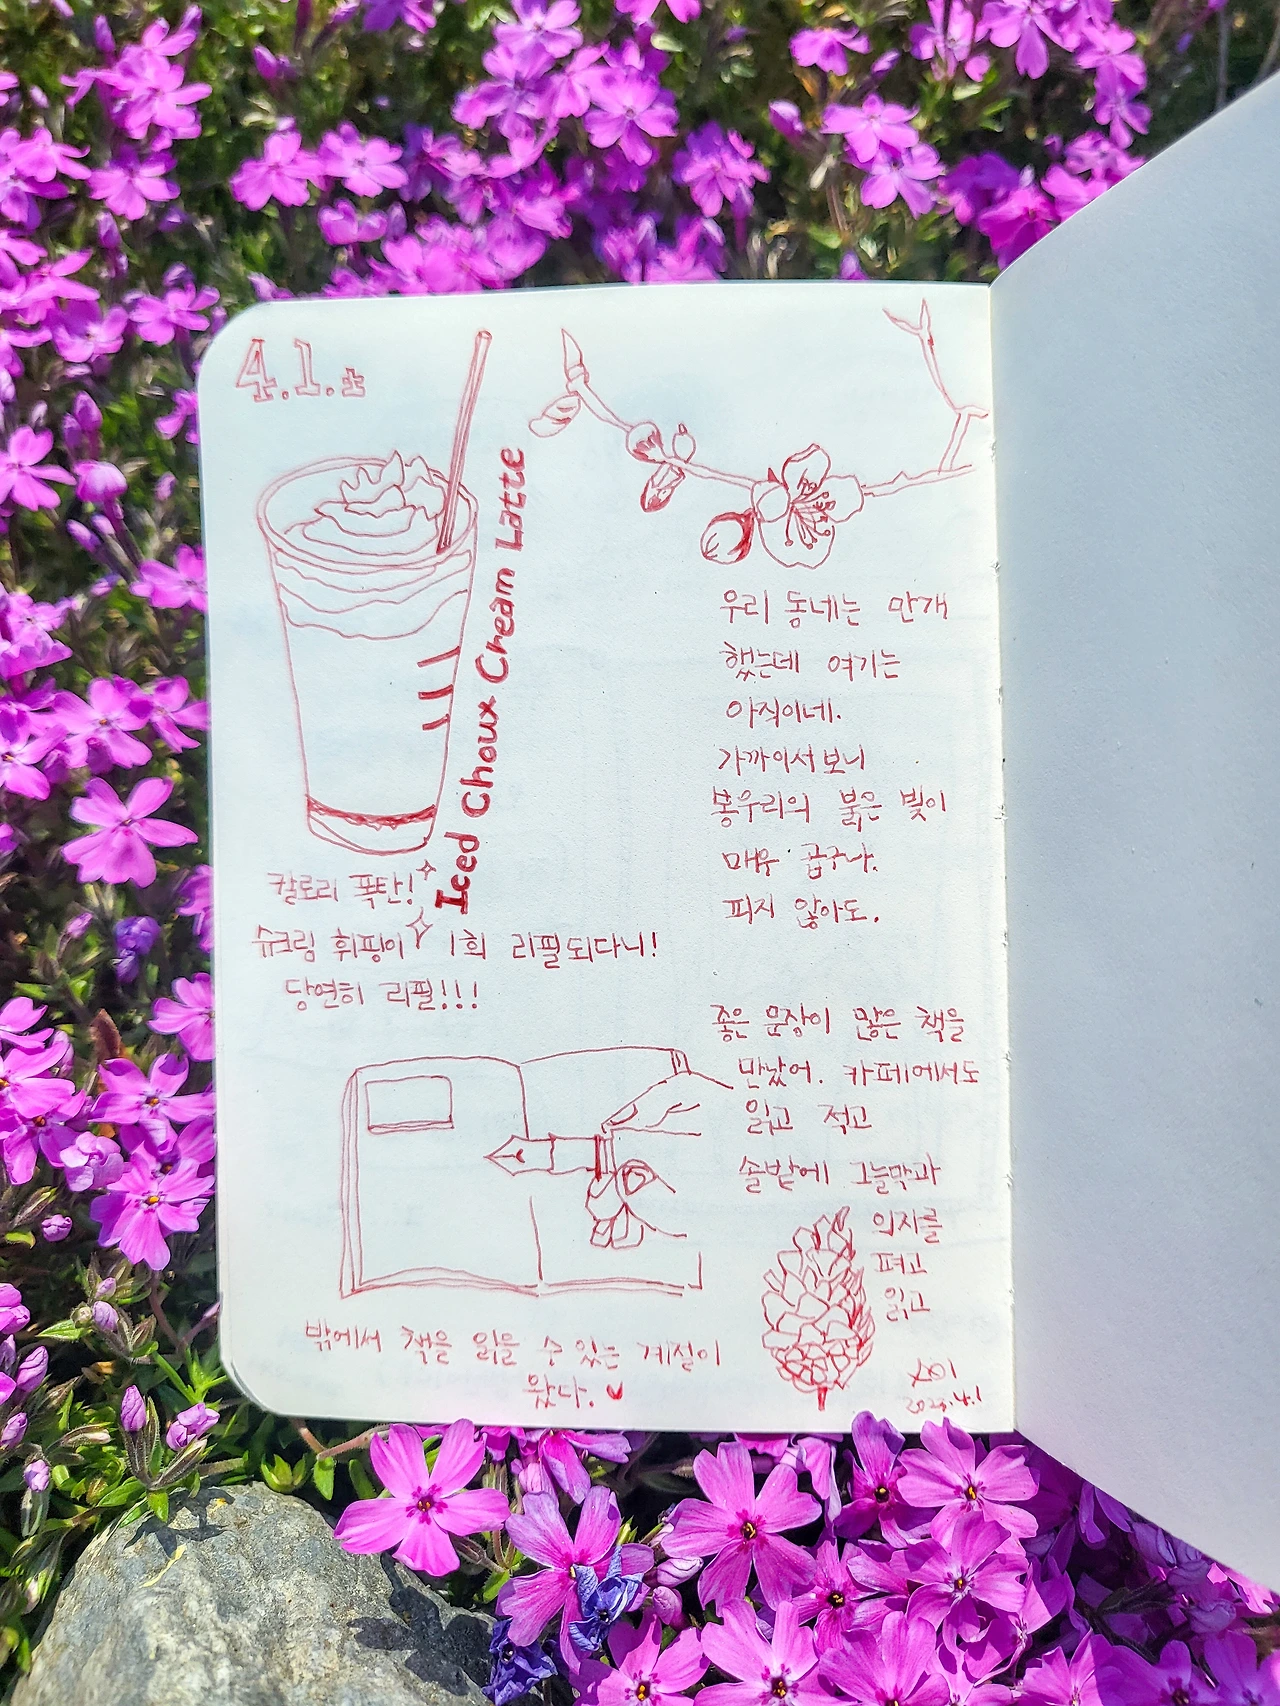 4.1.土
Iced Choux Cream Latte
칼로리 폭탄!
슈크림 휘핑이 1회 리필되다니!
당연히 리필!!!
우리 동네는 만개
했는데 여기는
아직이네.
가까이서 보니
봉우리의 붉은 빛이
매우 곱구나.
피지 않아도.
좋은 문장이 많은 책을
만났어. 카페에서도
읽고 적고
솔밭에 그늘막과
의자를
펴고
읽고
밖에서 책을 읽을 수 있는 계절이
왔다.
2023.4.1